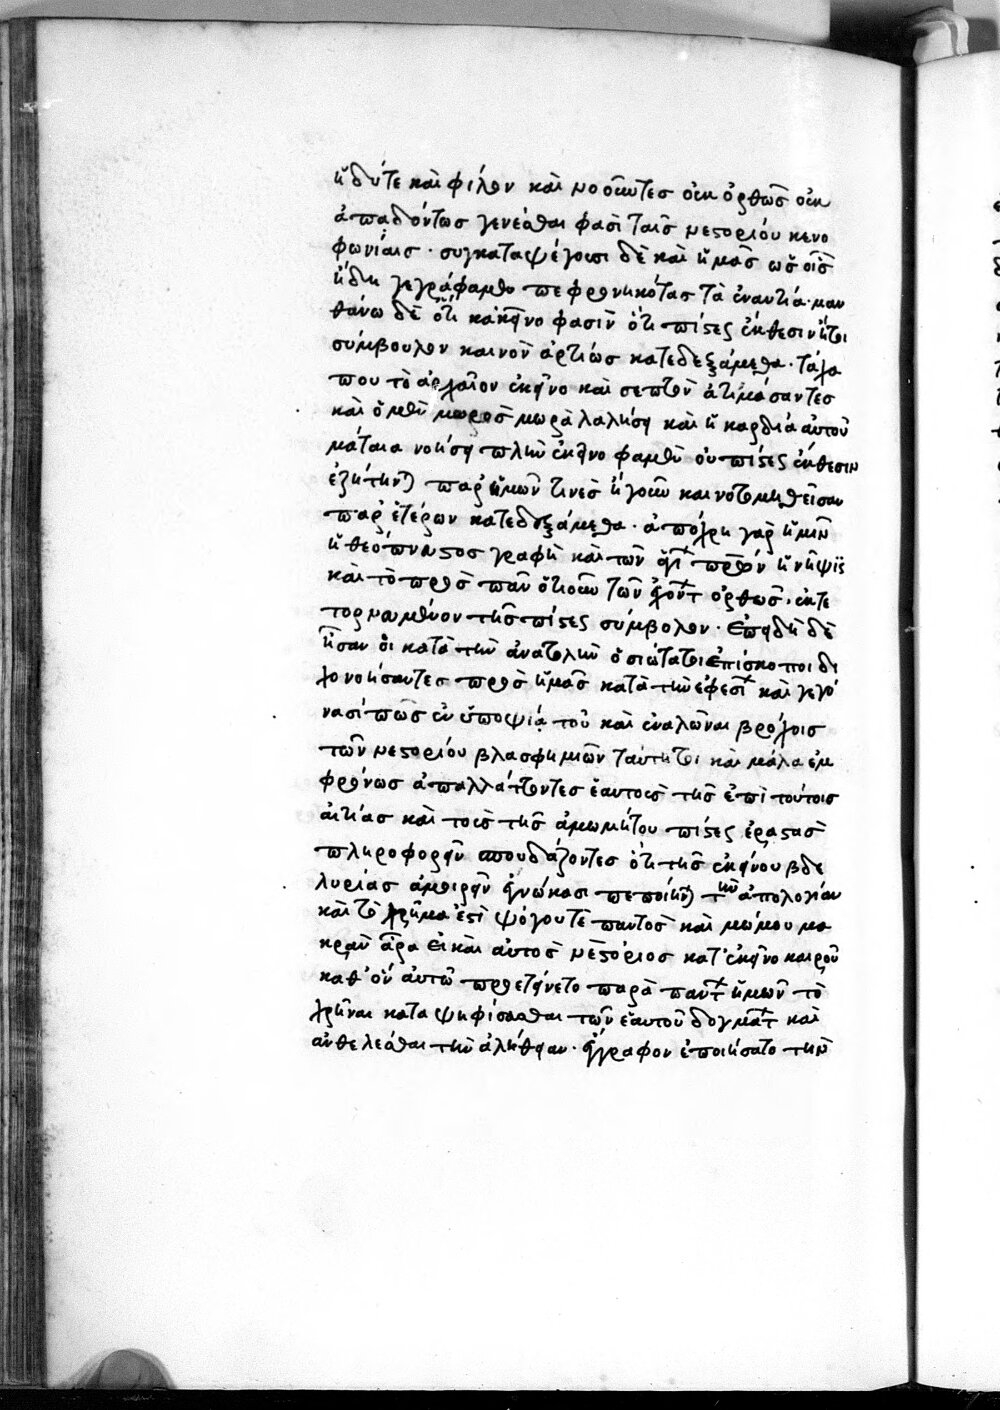 ἡδύτε καὶ φίλον καὶ νοοῦντες οὐκ ὀρθῶς οὐκ
ἀπαδόντως γενέσθαι φασὶ ταῖς νεστορίου κενο
φωνίαις · συγκαταψέγουσι δὲ καὶ ἡμᾶς ὡς οἷς
ἤδη γεγράφαμεν πεφρονηκότας τὰ ἐναντία · μαν
θάνω δὲ ὅτι κἀκεῖνο φασὶν ὅτι πίστεως ἔκθεσιν ἤτοι
σύμβουλον καινὸν ἀρτίως κατεδεξάμεθα · τάχα
που τὸ ἀρχαῖον ἐκεῖνο καὶ σεπτὸν ἀτιμάσαντες
καὶ ὁ μὲν μωρὸς μωρὰ λαλήσει καὶ ἡ καρδία αὐτοῦ
μάταια νοήσει πλὴν ἐκεῖνο φαμὲν οὐ πίστεως ἔκθεσιν
ἐζήτηνται παρ' ἡμῶν τινὲς ἤγουν καινοτομηθεῖσαν
παρ' ἑτέρων κατεδεξάμεθα · ἀπόχρη γὰρ ἡμῖν
ἡ θεόπνευστος γραφὴ καὶ τῶν ἁγί πρων ἡ νῆψις
καὶ τὸ πρὸς πᾶν ὁτιοῦν τῶν ἐχόντ ὀρθῶς · ἐκτε
τορνευμένον τῆς πίστεως σύμβολον · Ἐπειδὴ δὲ
ἦσαν οἱ κατὰ τὴν ἀνατολὴν ὁσιώτατοι ἐπίσκοποι δι
χονοήσαντες πρὸς ἡμᾶς κατὰ τὴν ἐφεσί καὶ γεγό
νασί πως ἐν ὑποψίᾳ τοῦ καὶ ἐναλῶναι βρόχοις
τῶν νεστορίου βλασφημιῶν ταύτητοι καὶ μάλα ἐμ
φρόνως ἀπαλλάττοντες ἑαυτοὺς τῆς ἐπὶ τούτοις
αἰτίας καὶ τοὺς τῆς ἀμωμήτου πίστεως ἐραστὰς
πληροφορεῖν σπουδάζοντες ὅτι τῆς ἐκείνου βδε
λυρίας ἀμοιρεῖν ἐγνώκασι πεποίηνται τὴν ἀπολογίαν
καὶ τὸ χρῆμα ἐστὶ ψόγου τε παντὸς καὶ μώμου μα
κρὰν ἄρα εἰ καὶ αὐτὸς νεστόριος κατ' ἐκεῖνο καιροῦ
καθ' ὃν αὐτῷ προετείνετο παρὰ παντ ἡμῶν τὸ
χρῆναι καταψηφίσασθαι τῶν ἑαυτοῦ δογμάτ καὶ
ἀνθελέσθαι τὴν ἀλήθειαν · ἔγγραφον ἐποιήσατο τὴν